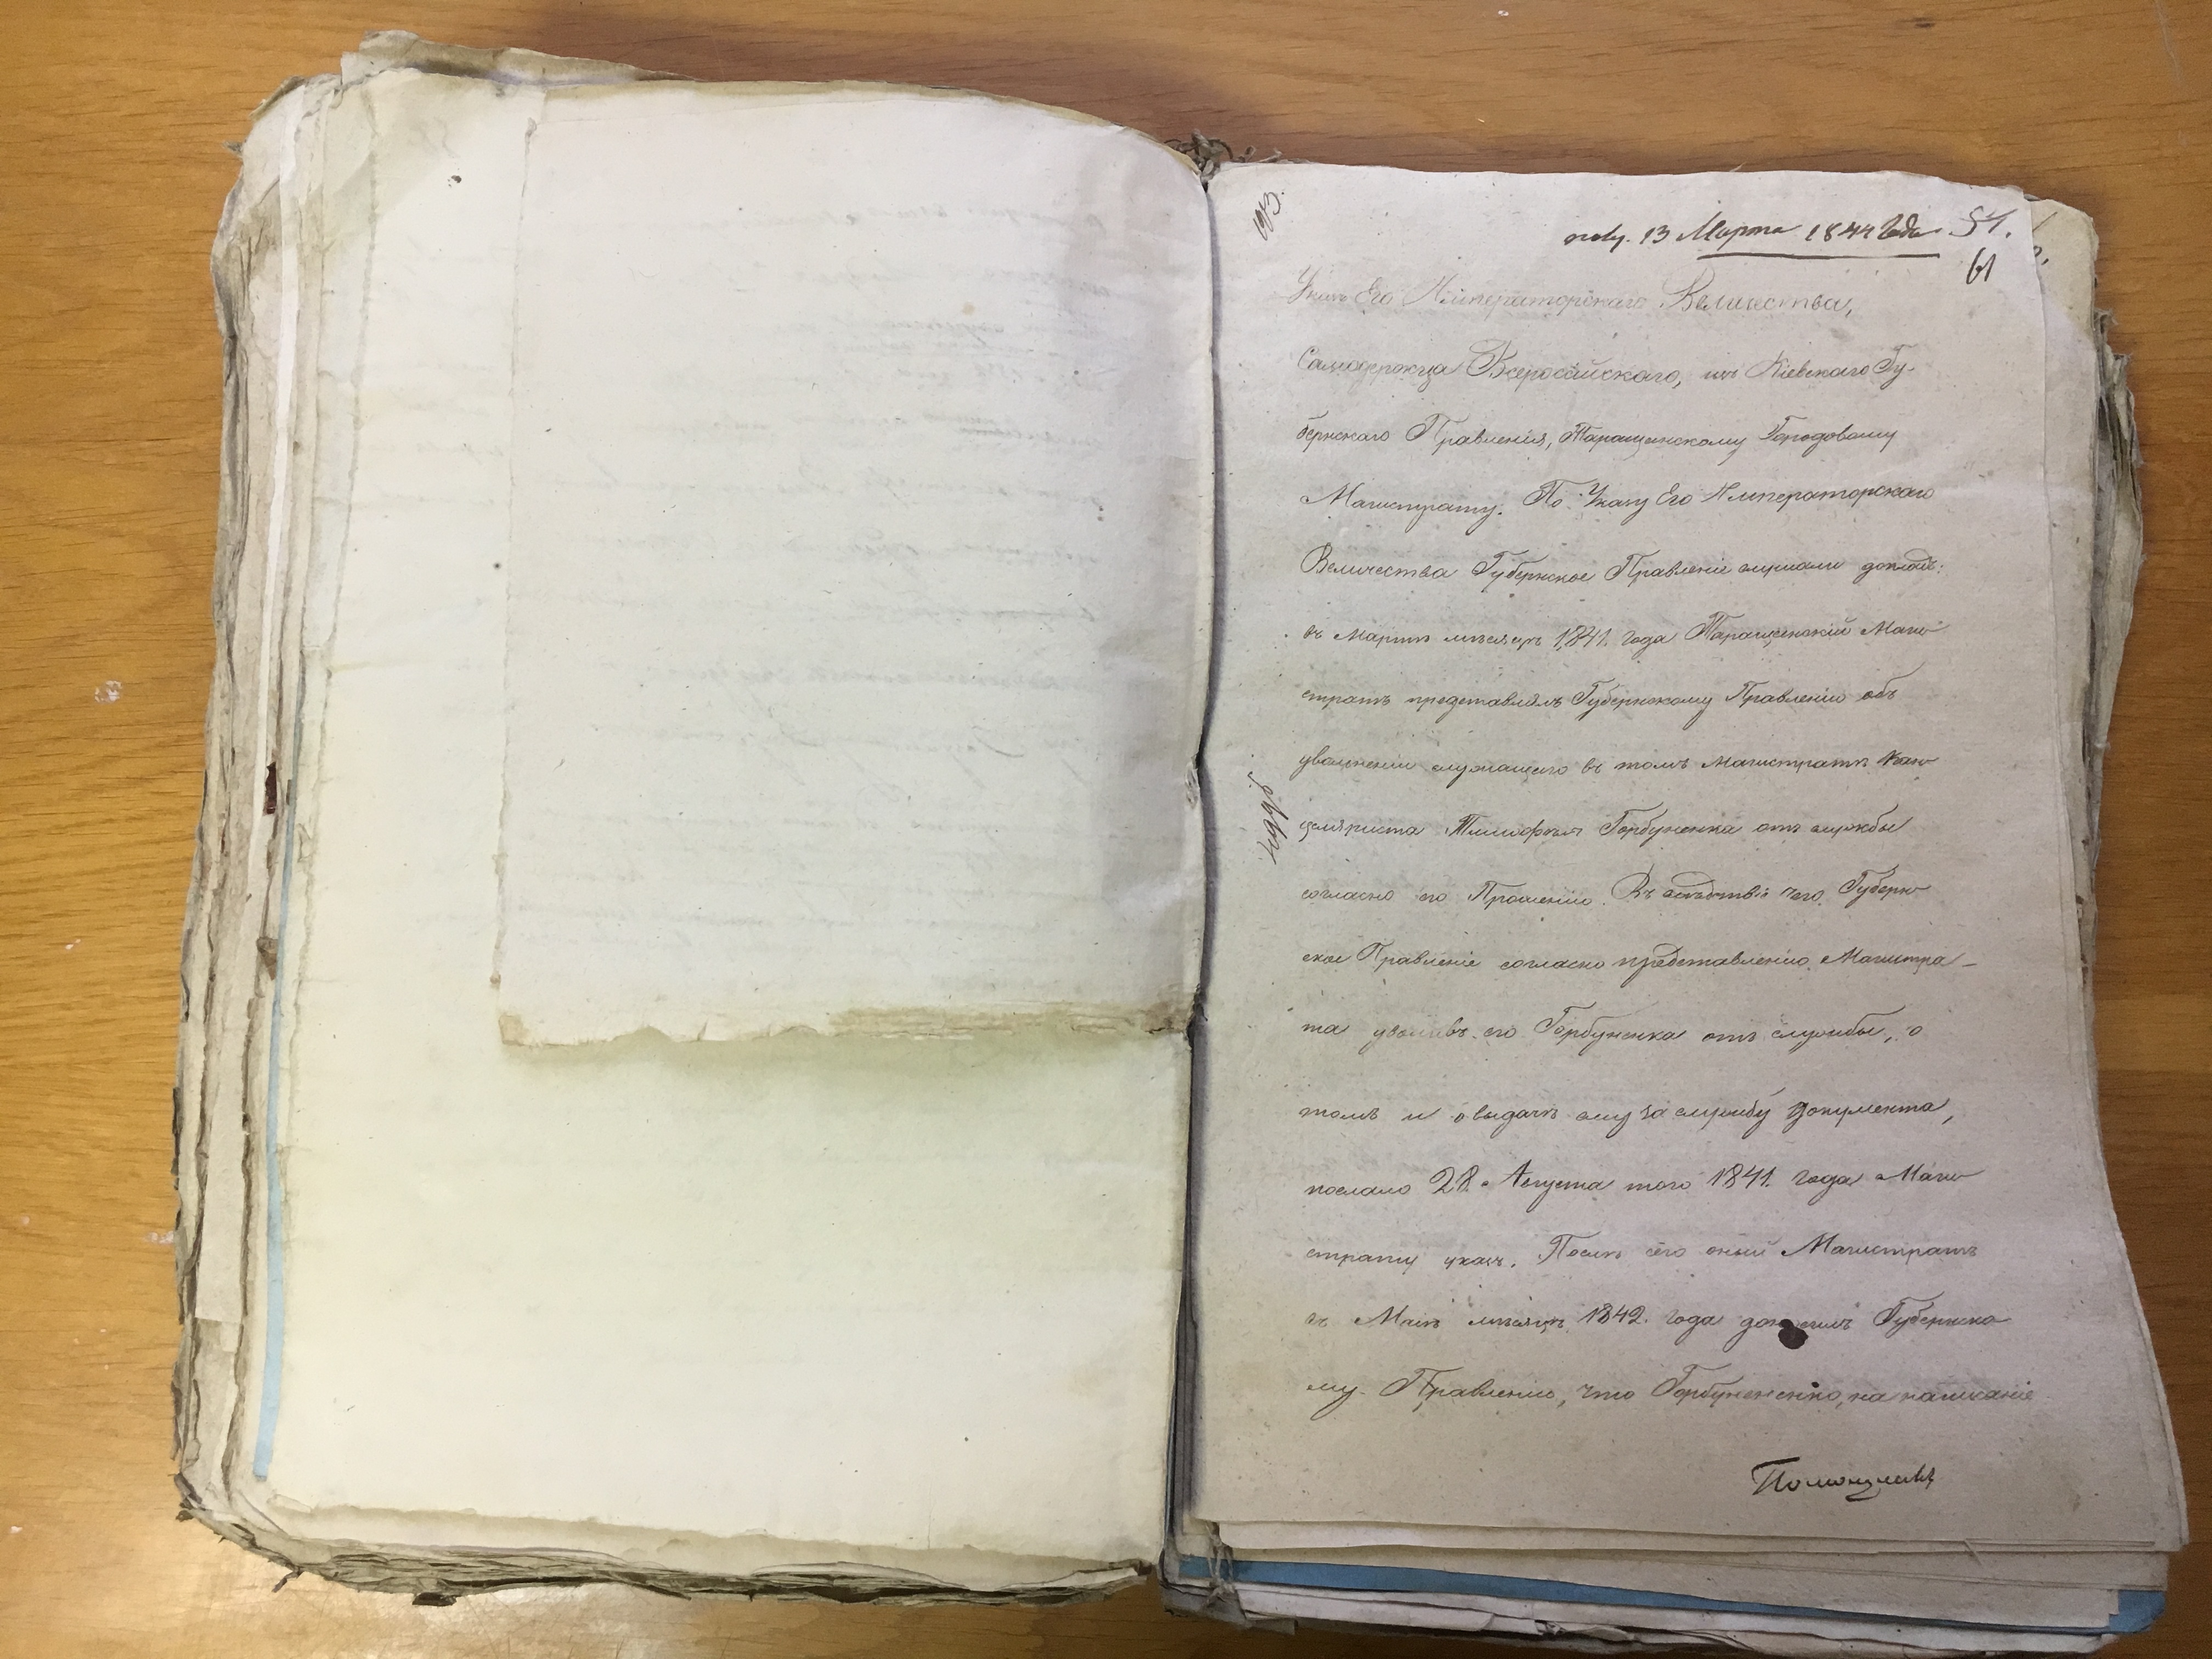 193.
полу. 13 Марта 1844 Года. 51.
61
Указъ Его Императорскаго Величества,
Самодержца Всеросійскаго, изъ Кіевскаго Гу-
бернскаго Правленія, Таращанскому Городовому
Магистрату. По Указу Его Императорскаго
Величества Губернское Правленіе слушали докладъ:
въ Мартѣ мѣсяцѣ 1841. года Таращанскій Маги
стратъ представлялъ Губернскому Правленію объ
увольненіи служащаго въ томъ Магистратѣ Кан
целяриста Тимофея Горбуненка отъ службы
согласно его Прошенію. Въ слѣдствіе чего Губерн
ское Правленіе согласно представленію Магистра-
та уволивъ его Горбуненка отъ службы, о
томъ и о выдачѣ ему за службу документа,
послало 28 Августа того 1841. года Маги
страту указъ. Послѣ сего оный Магистратъ
въ Маѣ мѣсяцѣ 1842. года Губернско
му Правленію, что Горбуненко, на написаніе